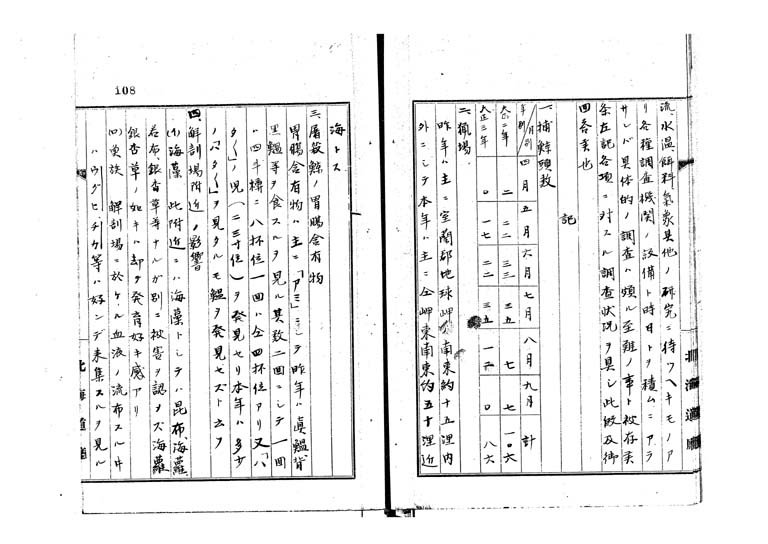 流、水温、餌料気象其他ノ研究ニ待ツヘキモノア
リ各種調査機関ノ設備ト時日トヲ積ムニアラ
サレバ具体的ノ調査ハ頗ル至難ノ事ト被存候
条左記各項ニ対スル調査状況ヲ具シ此段及御
回答候也
記
一、捕鯨頭数
年別/月別 四月 五月 六月 七月 八月 九月 計
大正二年 二 二二 三三 三五 七 七 一〇六
大正三年 〇 一七 二二 三五 一二 〇 八六
二、猟場
昨年ハ主ニ室蘭郡地球岬南東約十五浬内
外ニシテ本年ハ主ニ仝岬東南東約五十浬近
北海道庁
108
海トス
三、屠殺鯨ノ胃腸含有物
胃腸含有物ハ主ニ「アミ」ニシテ昨年ハ真鰮背
黒鰮等ヲ食スルヲ見ル其数二回ニシテ一回
ハ四斗樽ニ八杯位一回ハ仝四杯位アリ又「ハ
タ〱」ノ児(二三十位)ヲ発見セリ本年ハ多少
ノ「ハタ〱」ヲ見タルモ鰮ヲ発見セズト云フ
四、解剖場附近ノ影響
(イ)海藻 此附近ニハ海藻トシテハ昆布、海蘿、
若布、銀杏草等ナルガ別ニ被害ヲ認メズ海蘿
銀杏草ノ如キハ却テ発育好キ感アリ
(ロ)魚族 解剖場ニ於ケル血液ノ流布スルヤ
ハ「ウグヒ」チカ等ハ好ンデ来集スルヲ見ル
北海道庁